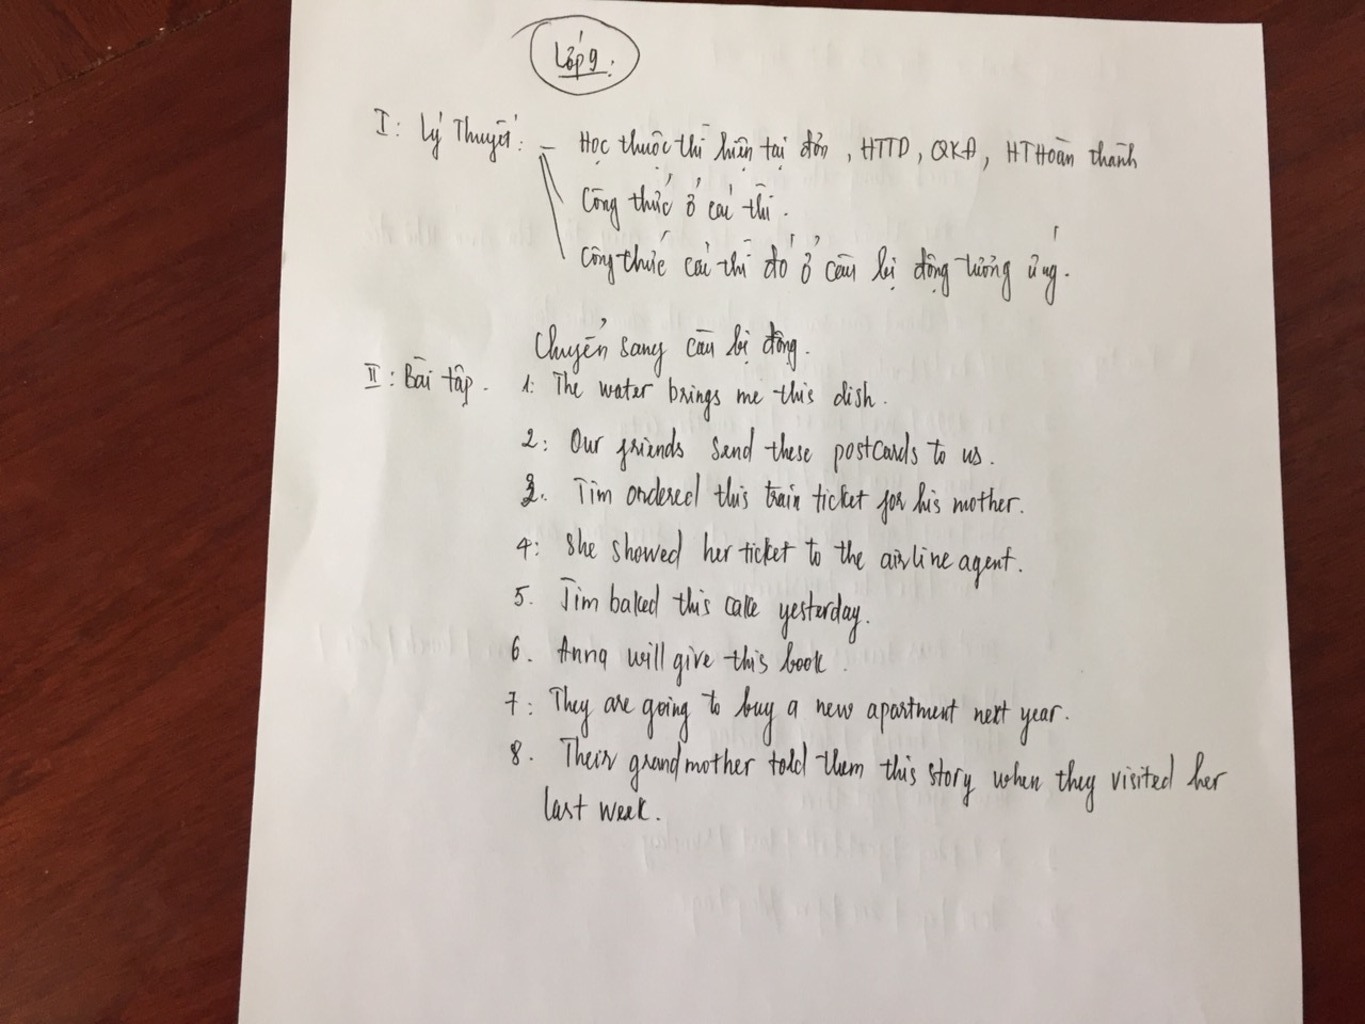 Lớp 9.
I: Lý Thuyết: - Học thuộc thì hiện tại đơn, HTTD, QKĐ, HT Hoàn thành
Công thức ở các thì.
Công thức các thì đó ở câu bị động tương ứng.
Chuyển sang câu bị động.
II: Bài tập. 1: The water brings me this dish.
2: Our friends send these postcards to us.
3. Tim ordered this train ticket for his mother.
4: She showed her ticket to the airline agent.
5. Jim baked this cake yesterday.
6. Anna will give this book.
7: They are going to buy a new apartment next year.
8. Their grandmother told them this story when they visited her
last week.